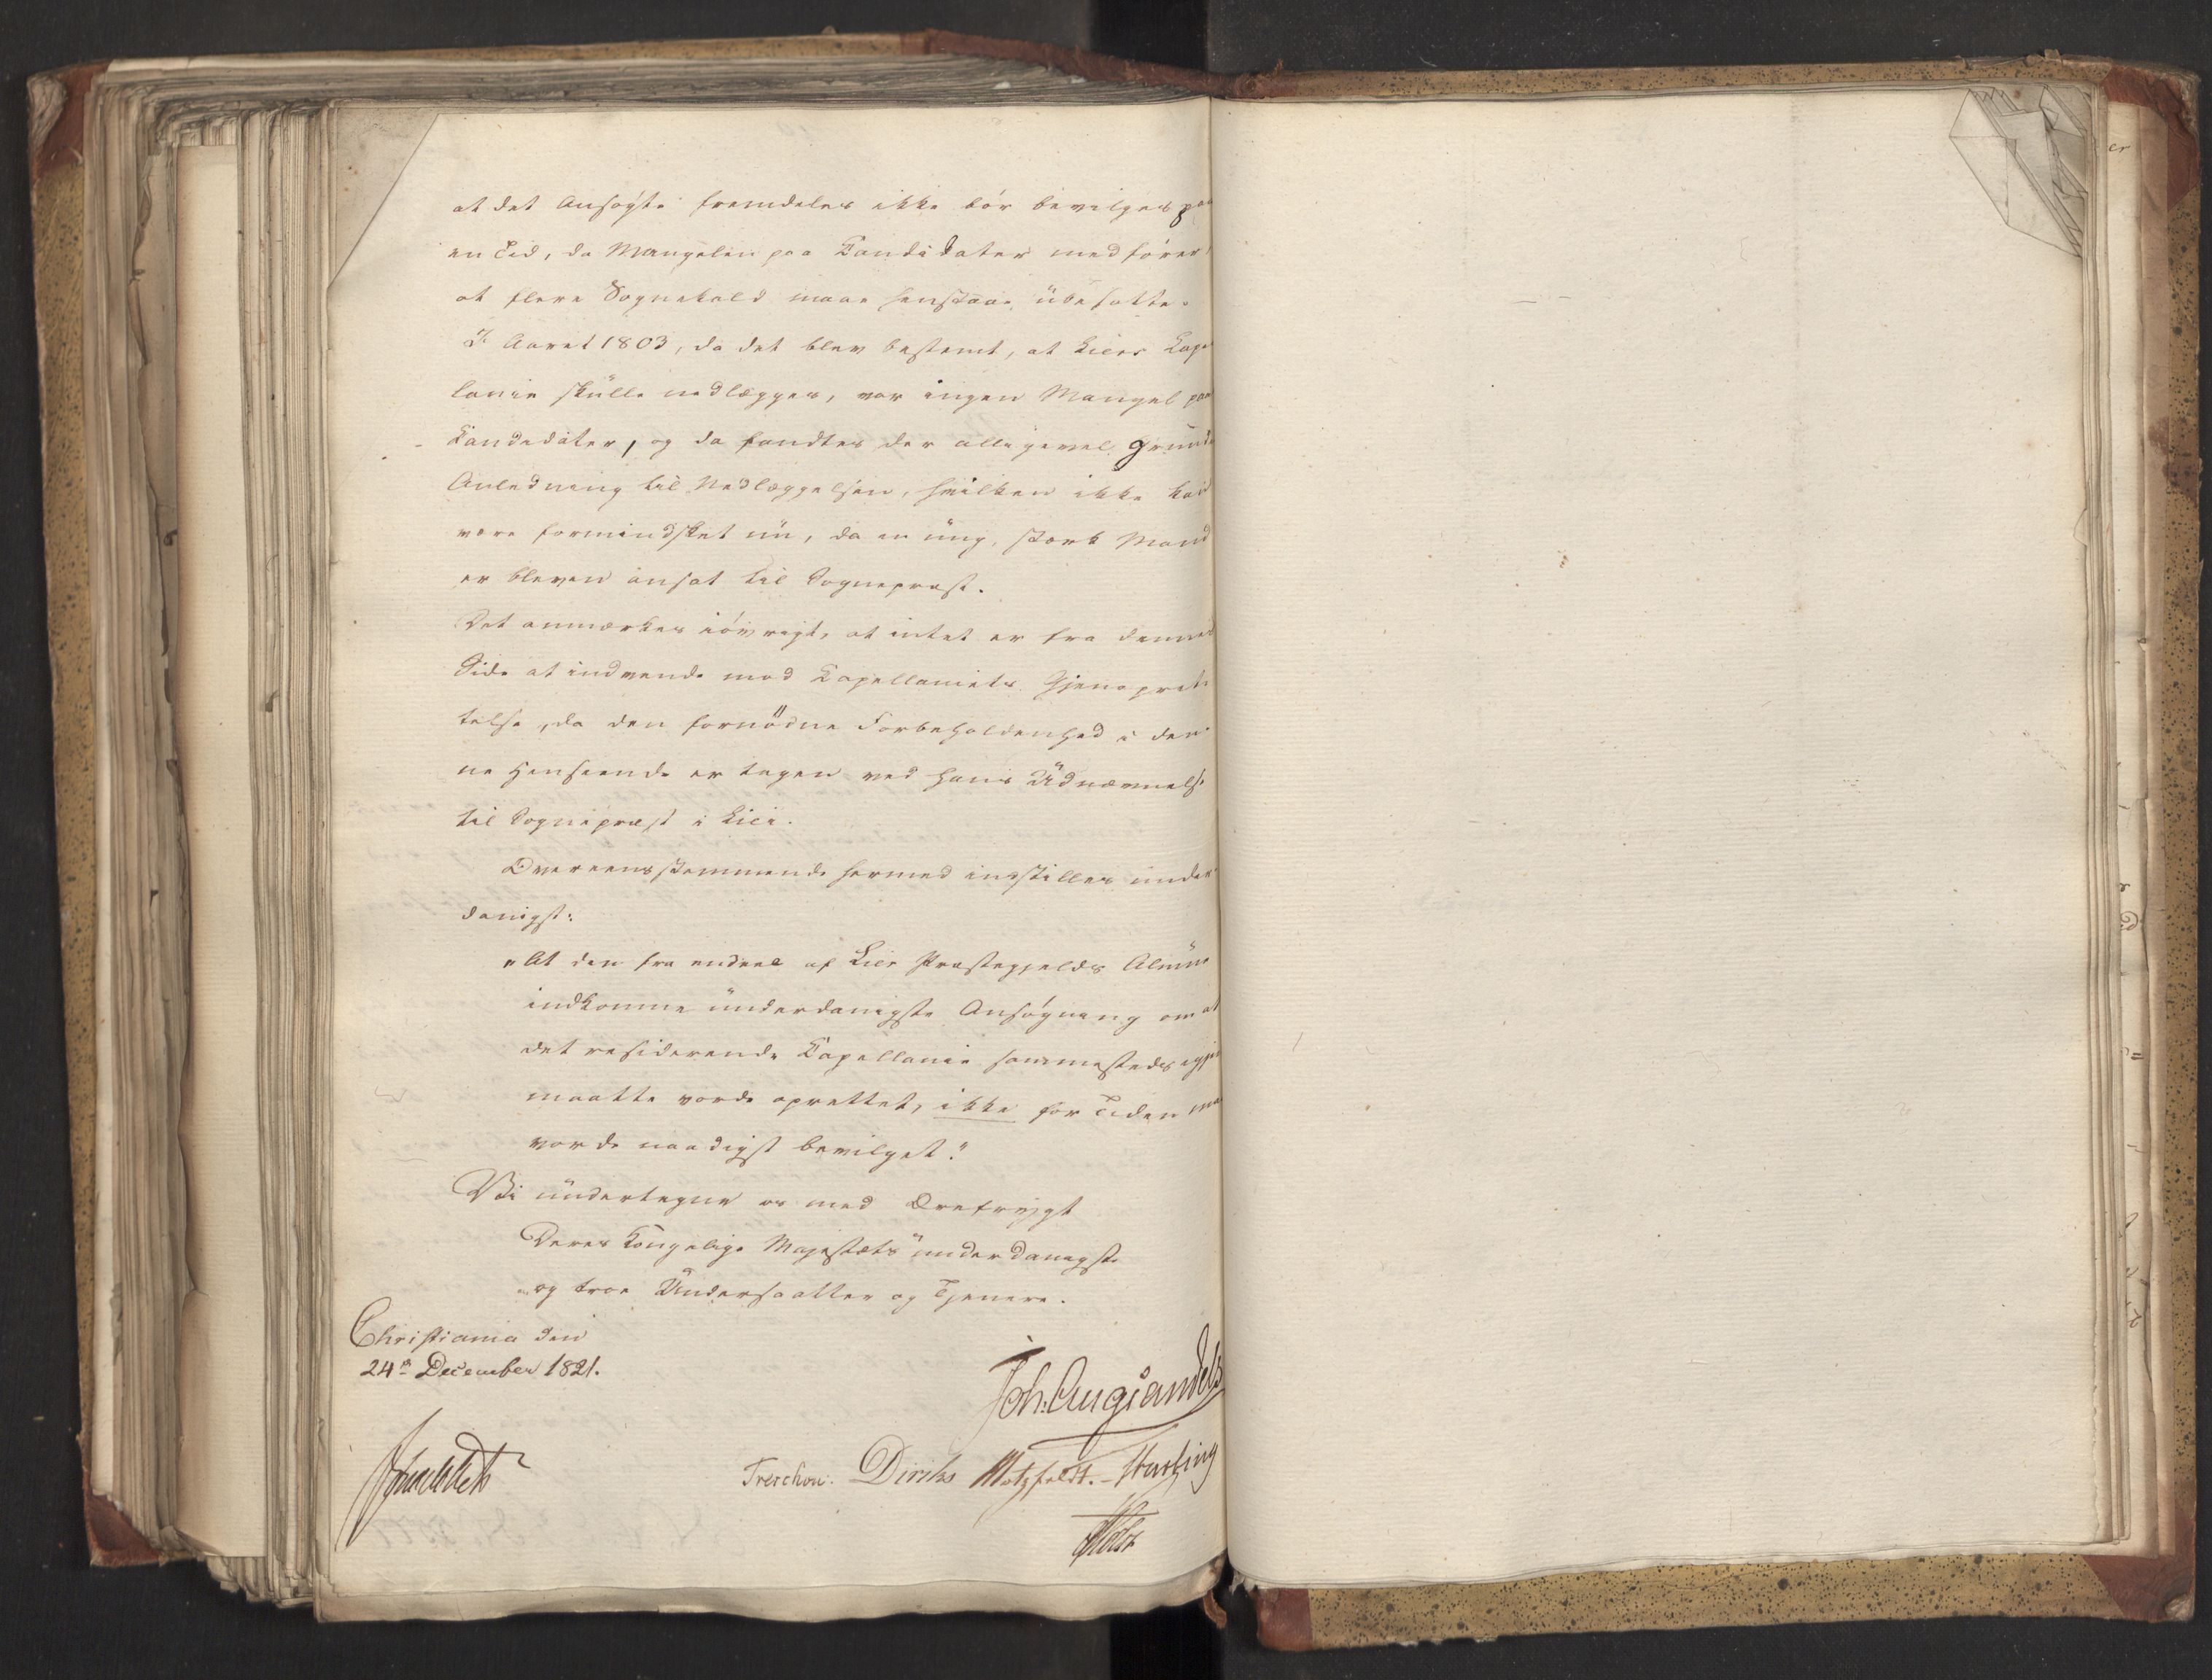 at det Ansøgte fremdeles ikke bør bevilges paa
en Tid, da Mangelen paa Candidater medfører
at flere Sognekald maae henstaae ubesatte.
I Aaret 1803, da det blev bestemt, at Liers Capel
lanie skulle nedlægges, var ingen Mangel paa
Candidater, og da fandtes der alligevel Grund
Anledning til Nedlæggelsen, hvilken ikke kan
være formindsket nu, da en ung, stærk Mand
er bleven ansat til Sognepræst.
Det anmærkes iøvrigt, at intet er fra dennes
Side at indvende mod Capellaniets Gjenopret
telse, da den fornødne Forbeholdenhed i den
ne Henseende er tagen ved hans Udnævnelse
til Sognepræst i Lier.
Overeensstemmende hermed indstilles under
danigst:
"At den fra endeel af Lier Præstegjelds Almue
indkomne underdanigste Ansøgning om at
det residerende Capellanie sammesteds igjen
maatte vorde oprettet, ikke for Tiden maa
vorde naadigst bevilget."
Vi undertegne os med Ærefrygt
Deres Kongelige Majestæts underdanigste
og troe Undersaatter og Tjenere.
Christiania den
24de December 1821.
Joh. Aug. Sandels
Treschow. Diriks Motzfeldt. Hesting
Holst